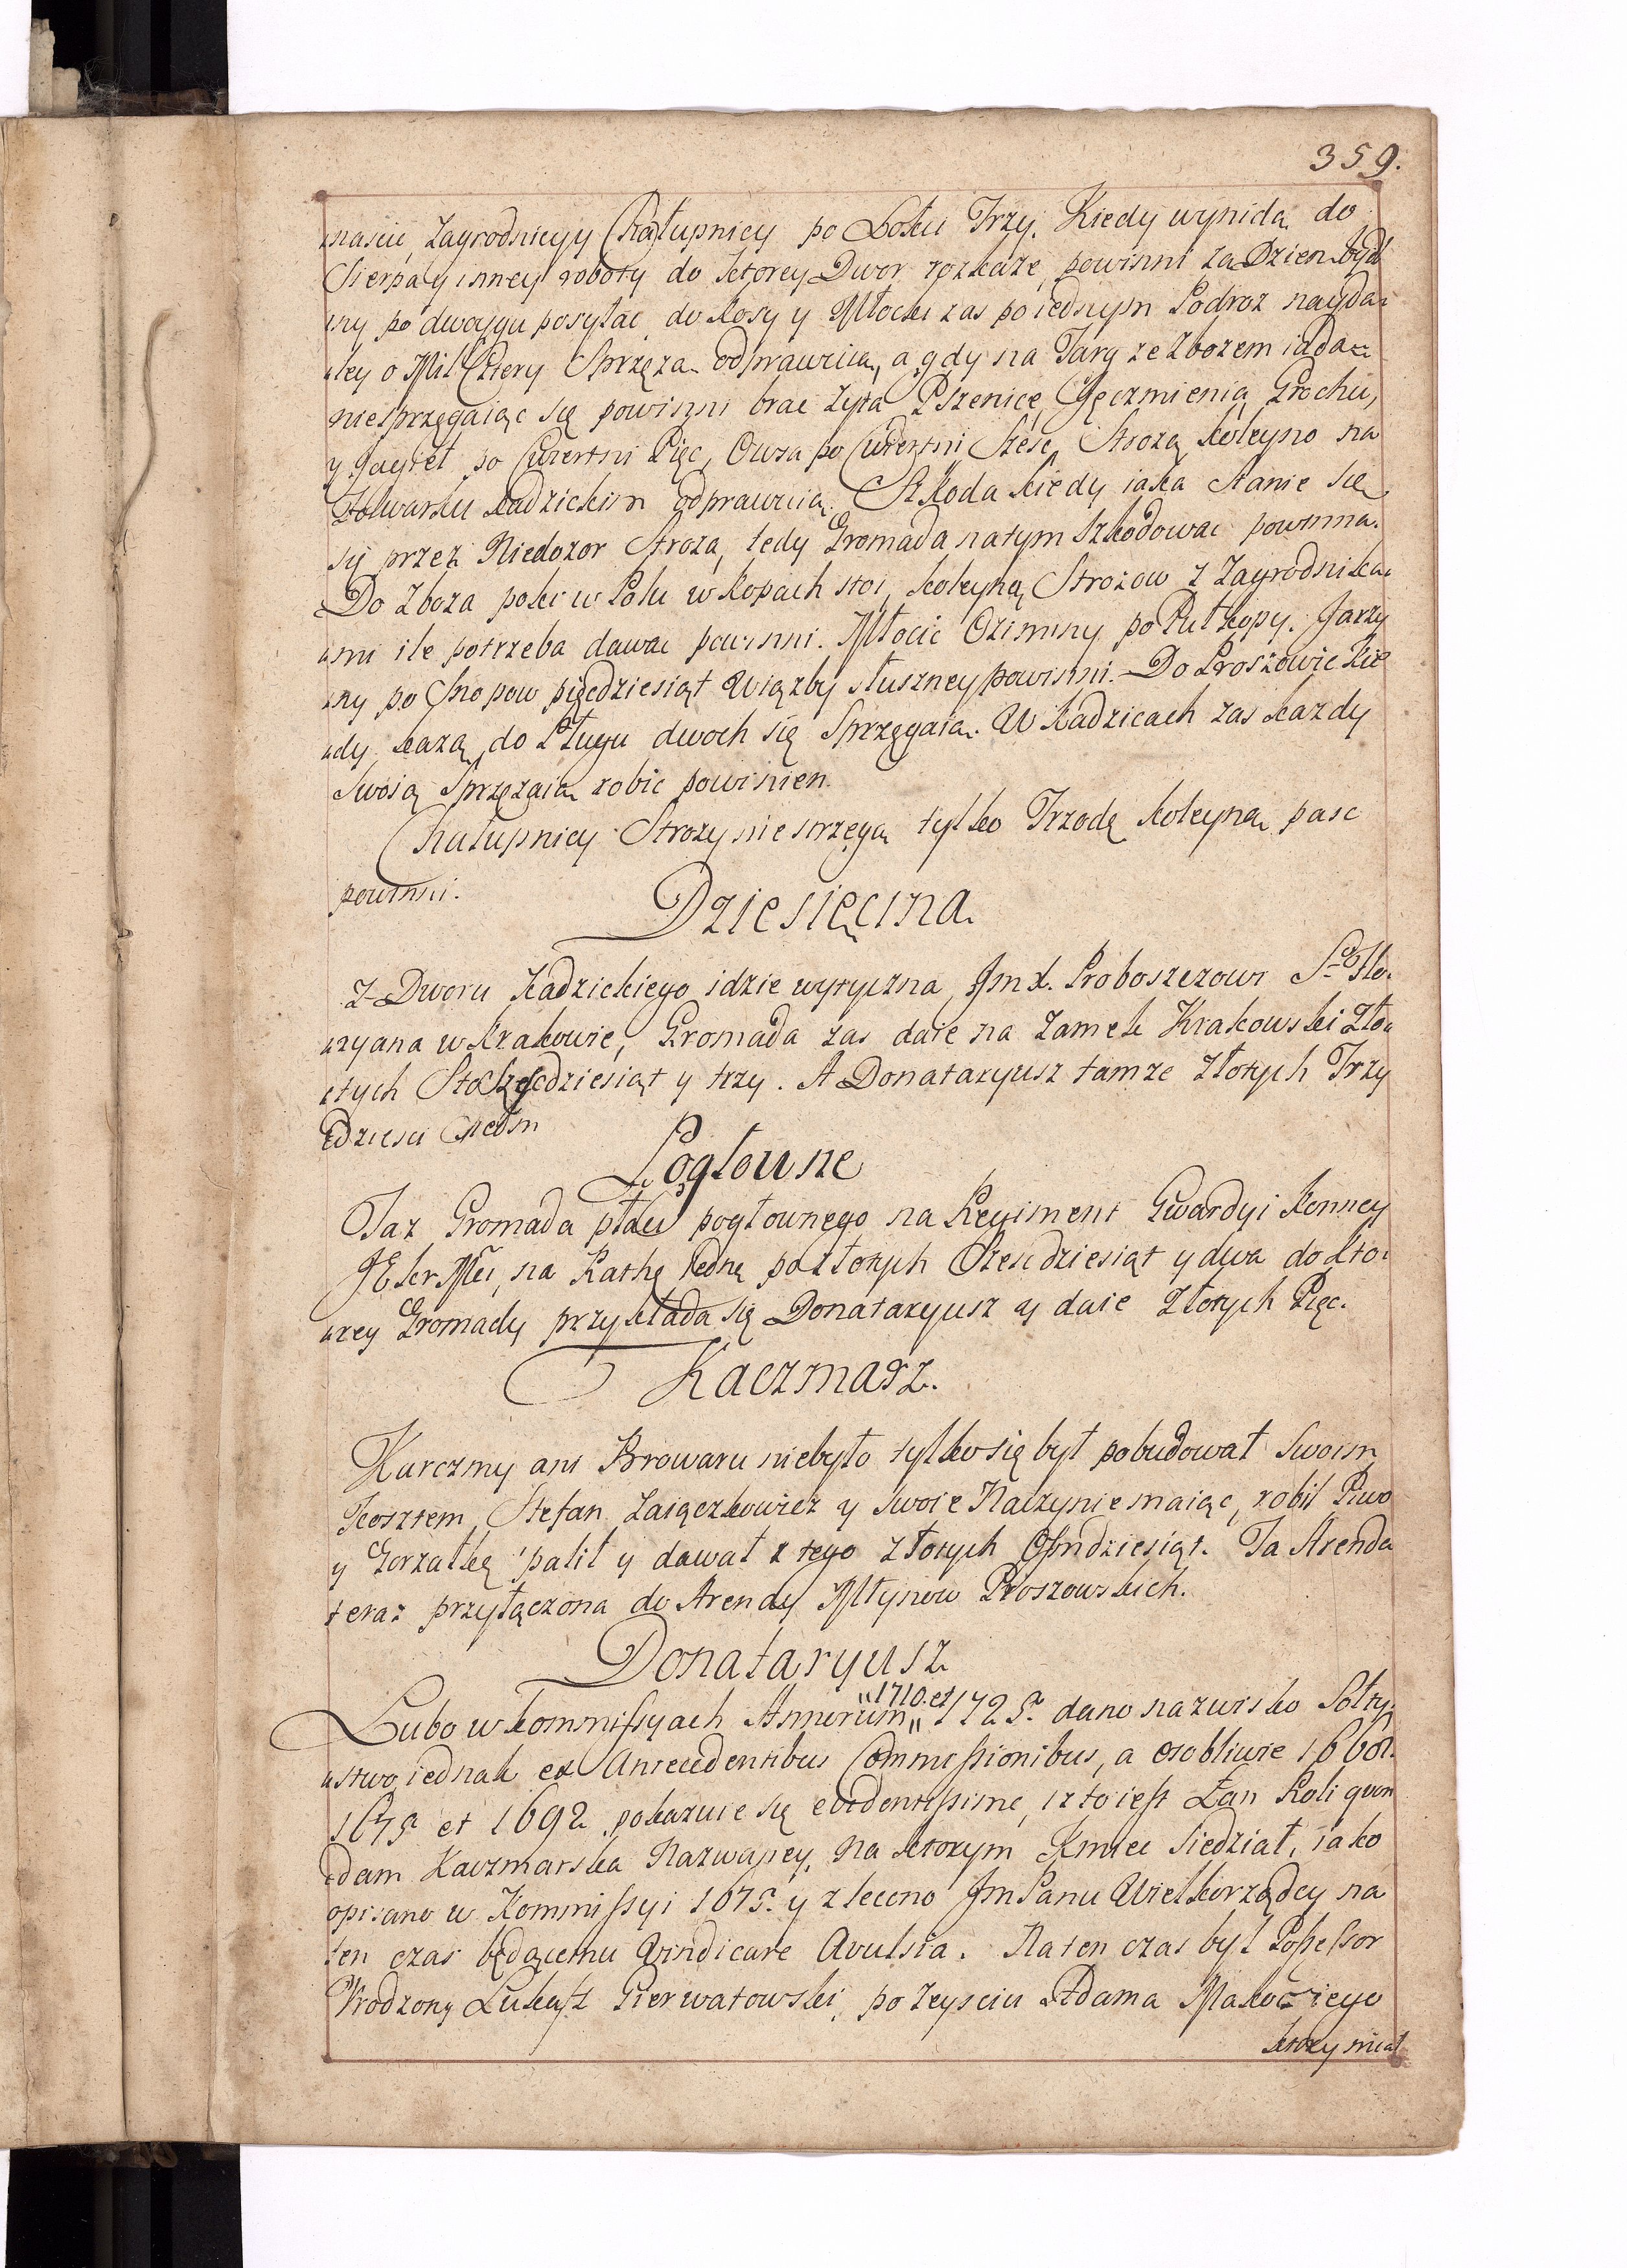 359.
naście, Zagrodnicy y Chałupnicy po Łokci Trzy. Kiedy wynidą do
Sierpa y inney roboty do ktorey Dwor rozkaże, powinni za Dzien
ny po dwoygu posyłać, do Kosy y Młocki zas po iednym Podroz nayda-
ley o Mil Cztery Sprzęzą odprawuią, a gdy na Targ ze Zbozem iadą
niesprzęgaiąc się powinni brac Zyta Pszenice, Jęczmienia, Grochu,
y Jagieł po Cwiertni Pięc, Owsa po Cwiertni Szesc, Strozą koleyno na
Folwarku Kadzickim odprawuią. Szkoda kiedy iaka stanie się
 przez Niedozor Stroza, tedy Gromada na tym Szkodowac powinna.
Do Zboza poki w Polu w kopach stoi, koleyną Strożow z Zagrodnika-
mi ile potrzeba dawac powinni. Młocic Oziminy po Puł kopy. Jarzy
ny po Snopow pięcdziesiąt Wiązby słuszney powinni. Do Proszowic kie
dy każą, do Pługu dwoch się Sprzęgaią. W Kadzicach zas kazdy
Swoią Sprzęzaią robic powinien.
Chałupnicy Strozy nie strzegą tylko Trzodę koleyną pasc
powinni.
Dziesięcina.
Z Dworu Kadzickiego idzie wytyczna Jm X. Proboszczowi S-go Flo-
ryana w Krakowie, Gromada zas daie na Zamek Krakowski Zło-
tych Sto Szescdziesiąt y trzy. A Donataryusz tamze Złotych Trzy
dziesci Siedm
Pogłowne
Taz Gromada płaci pogłownego na Regiment Gwardyi Konney
JKr Mci, na Rathę iedną po Złotych Szescdziesiąt y dwa do kto-
rey Gromady przykłada się Donataryusz y daie Złotych Pięc.
Kaczmarz.
Karczmy ani Browaru niebyło tylko się był pobudował Swoim
kosztem Stefan Zaiączkowicz y swoie Naczynie maiąc, robił Piwo
y Gorzałkę palił y dawał z tego Złotych Osmdziesiąt. Ta Arenda
teraz przyłączona do Arendy Młynow Proszowskich.
Donataryusz
Lubo w kommissyach Annorum 1710. et 1725. dano nazwisko Sołty-
stwo, iednak ex Antecedentibus Commissionibus, a osobliwie 1660.
1675 et 1692 pokazuie się evidentissime, iz to iest Łan Roli quon
dam Kaczmarska Nazwaney, na ktorym Kmiec Siedział, iako
opisano w Kommissyi 1675. y zlecono Jm Panu Wielkorządcy na
ten czas będącemu Vindicare Avulsia. Na ten czas był Possessor
Urodzony Łukasz Gierwatowski, po Zeysciu Adama Makockiego
ktory miał